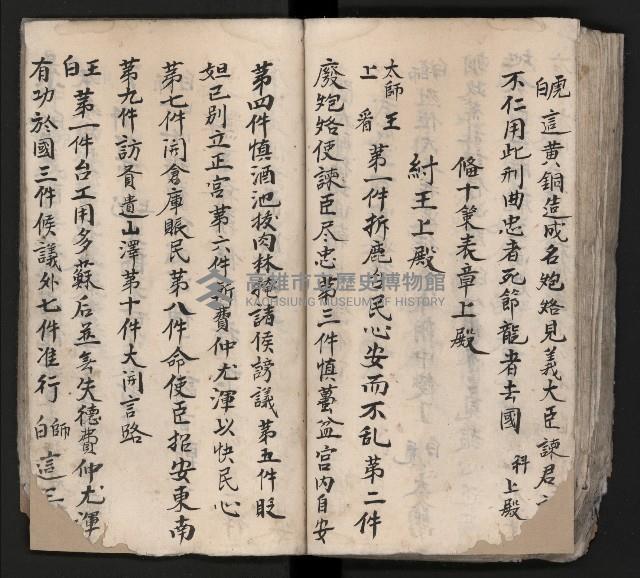 虎白 這黃銅造成名炮烙見義大臣諫君
不仁用此刑曲忠者死節龍者去國 科上殿
俻十策表章上殿
紂王上殿
太師上 王看 第一件拆鹿台民心安而不乱第二件
廢炮烙使諫臣尽忠第三件填蠆盆宮內自安
第四件填酒池拔肉林掩諸侯謗議第五件貶
妲己別立正宮第六件斬費仲尤渾以快民心
第七件開倉庫賑民第八件命使臣招安東南
第九件訪賢遺山澤第十件大開言路
王白 第一件台工用多蘇后並無失德費仲尤渾
有功於國三件候議外七件准行 師白 這三
高雄市立歷史博物館
KAOHSIUNG MUSEUM OF HISTORY